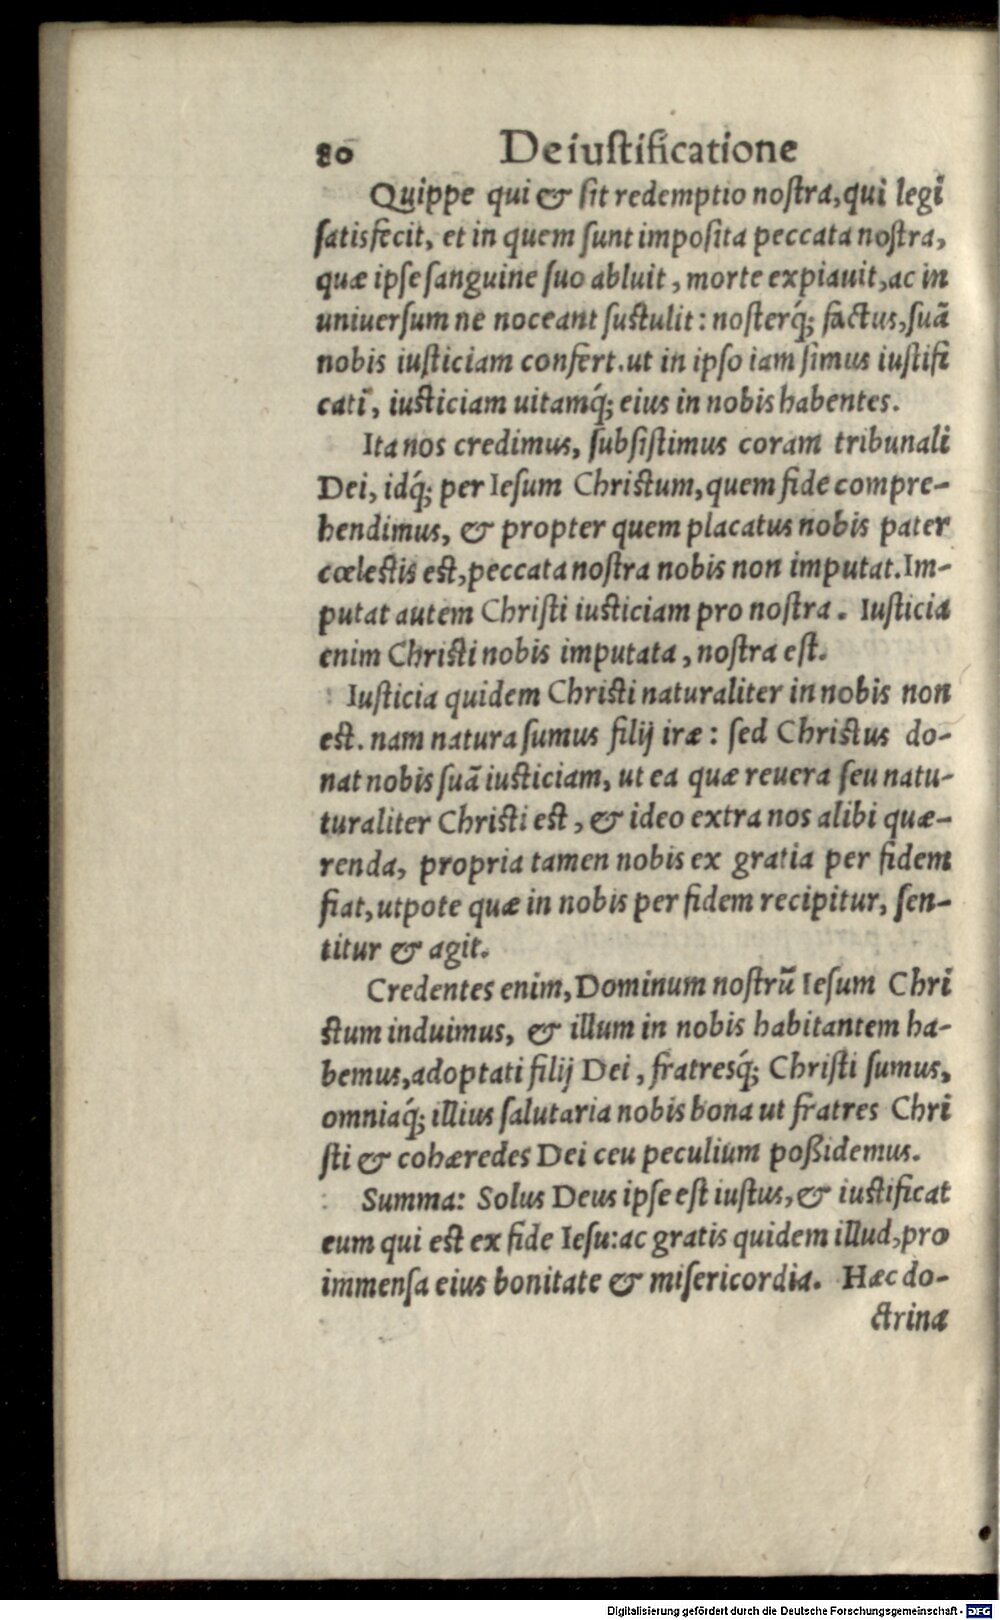 80 De iustificatione
Quippe qui & sit redemptio nostra, qui legi
satisfecit, et in quem sunt imposita peccata nostra,
quæ ipse sanguine suo abluit, morte expiauit, ac in
uniuersum ne noceant sustulit: nosterq́; factus, suã
nobis iusticiam confert. ut in ipso iam simus iustifi
cati, iusticiam uitamq́; eius in nobis habentes.
Ita nos credimus, subsistimus coram tribunali
Dei, idq́; per Iesum Christum, quem fide compre-
hendimus, & propter quem placatus nobis pater
cœlestis est, peccata nostra nobis non imputat. Im-
putat autem Christi iusticiam pro nostra. Iusticia
enim Christi nobis imputata, nostra est.
Iusticia quidem Christi naturaliter in nobis non
est. nam natura sumus filij iræ: sed Christus do-
nat nobis suã iusticiam, ut ea quæ reuera seu natu-
turaliter Christi est, & ideo extra nos alibi quæ-
renda, propria tamen nobis ex gratia per fidem
fiat, utpote quæ in nobis per fidem recipitur, sen-
titur & agit.
Credentes enim, Dominum nostrũ Iesum Chri
stum induimus, & illum in nobis habitantem ha-
bemus, adoptati filij Dei, fratresq́; Christi sumus,
omniaq́; illius salutaria nobis bona ut fratres Chri
sti & cohæredes Dei ceu peculium poßidemus.
Summa: Solus Deus ipse est iustus, & iustificat
eum qui est ex fide Iesu: ac gratis quidem illud, pro
immensa eius bonitate & misericordia. Hæc do-
ctrina
Digitalisierung gefördert durch die Deutsche Forschungsgemeinschaft - DFG